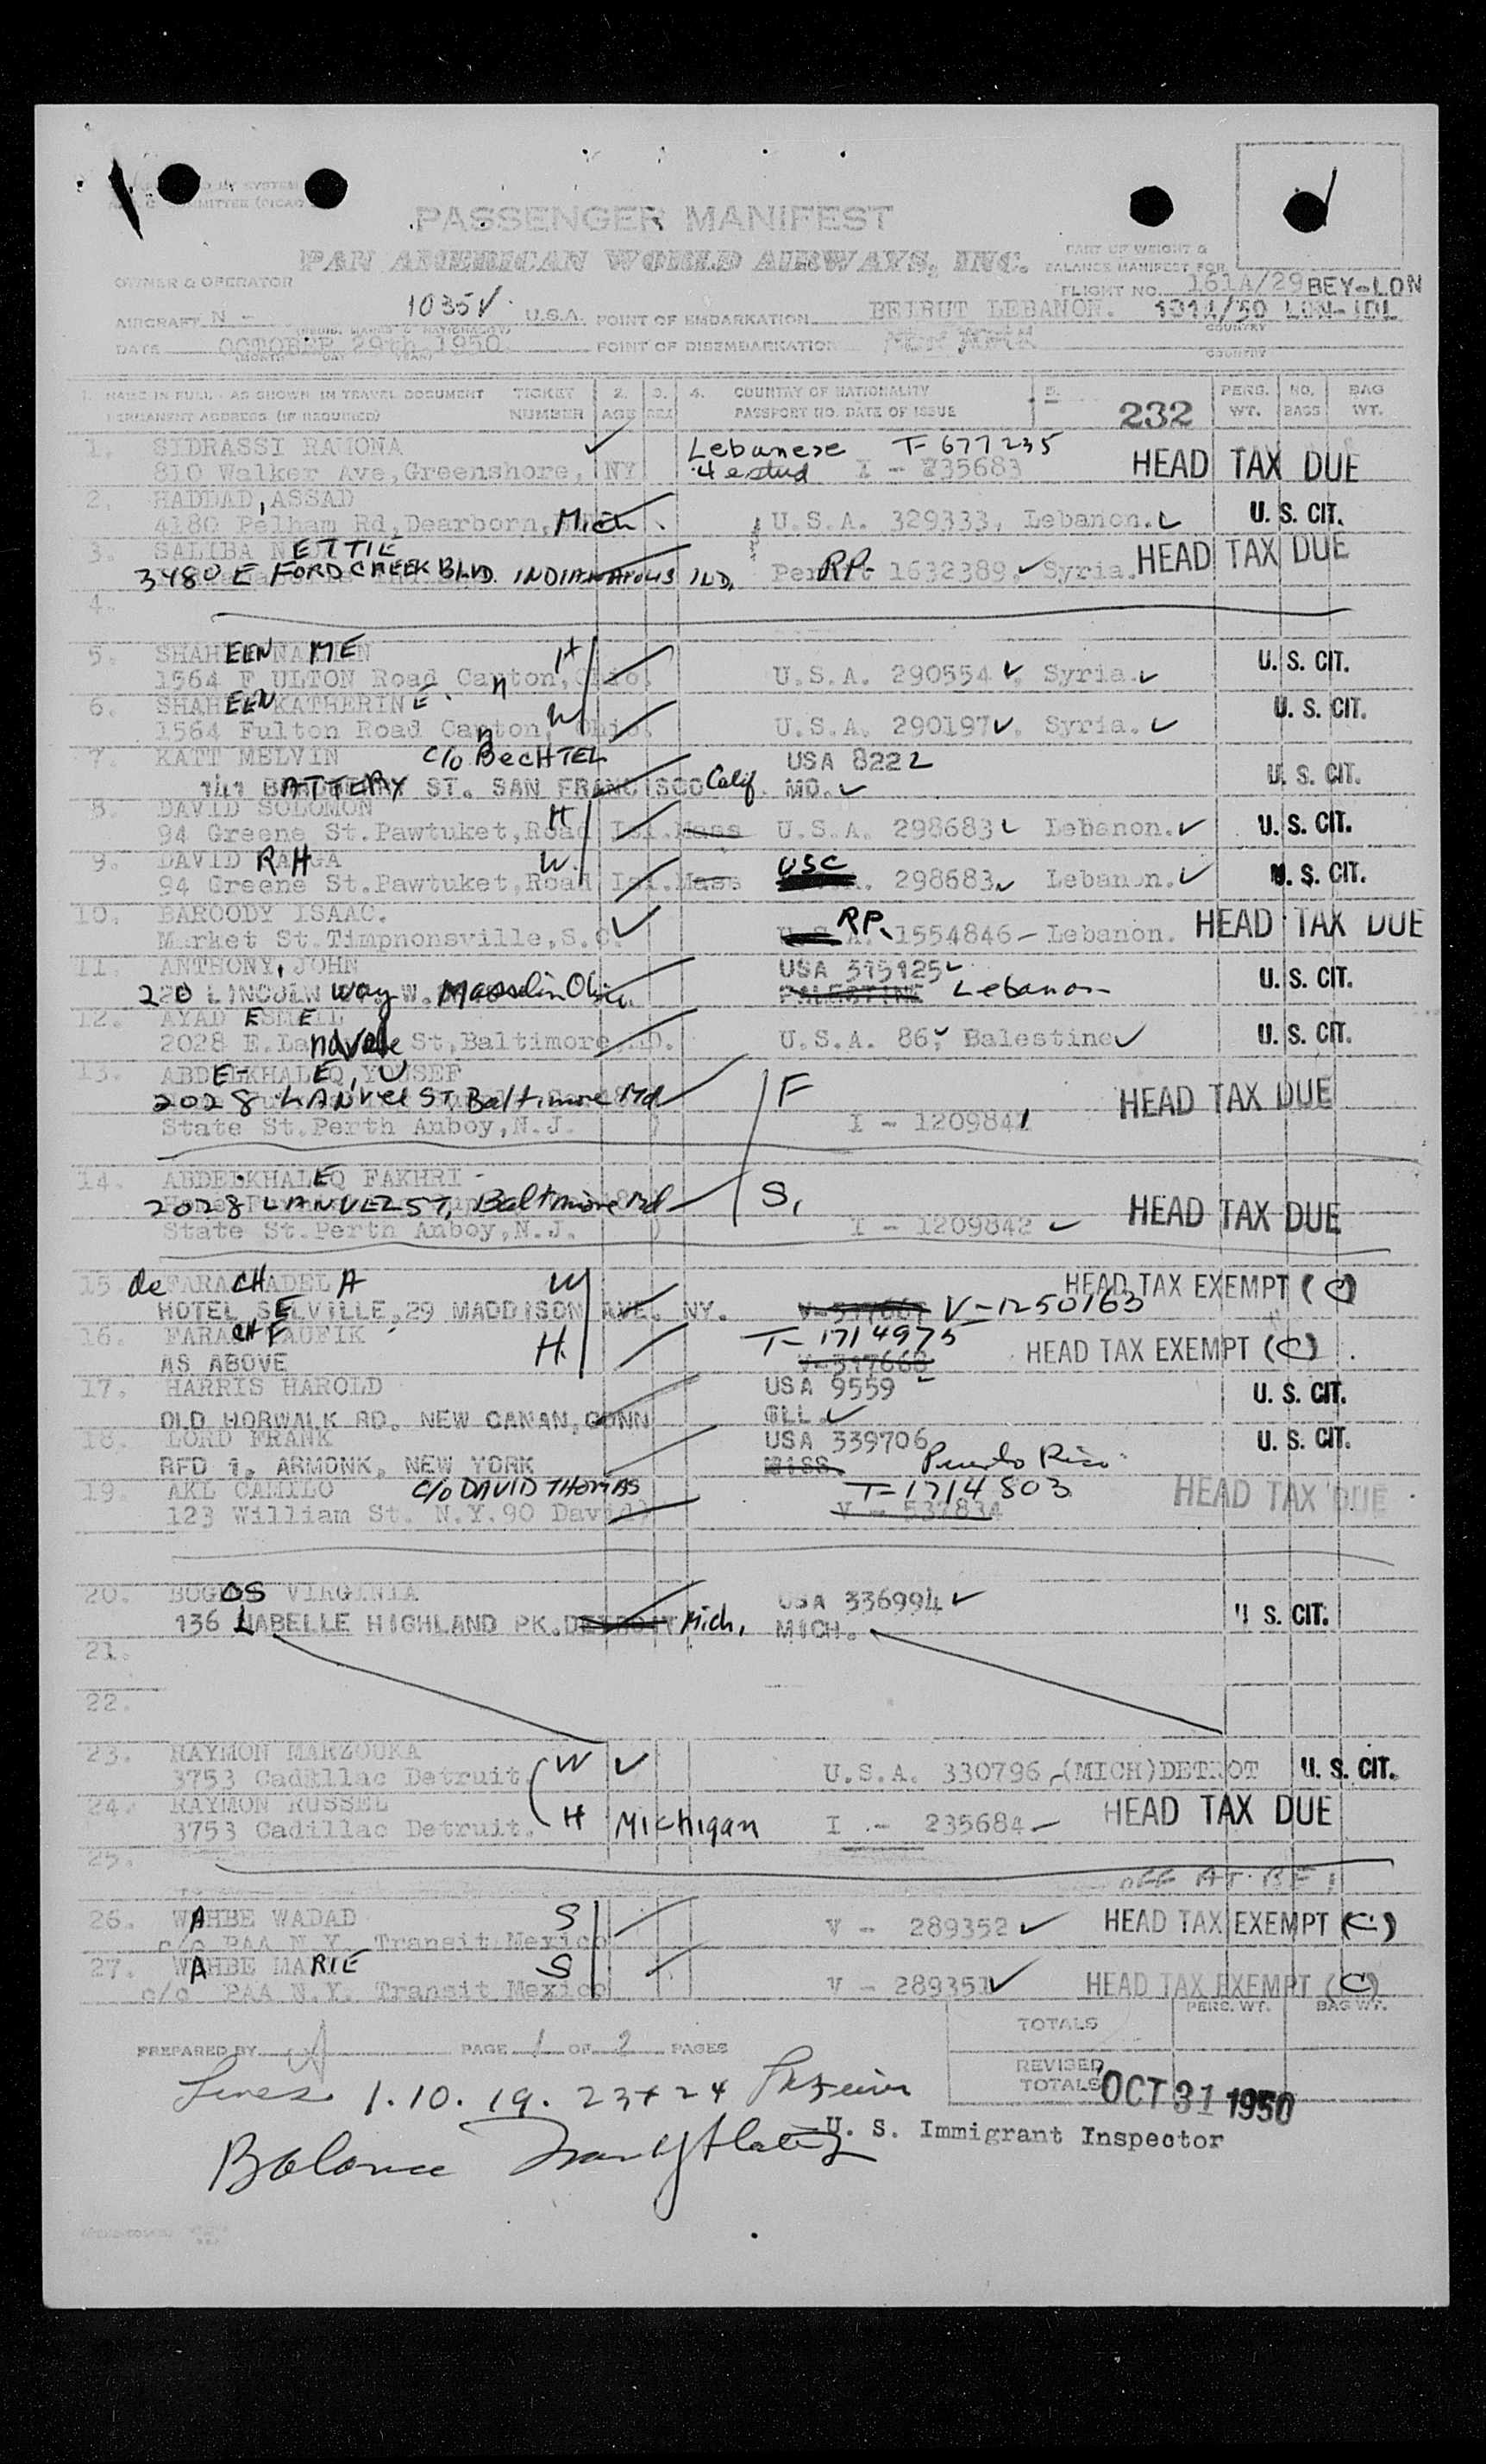 PASSENGER MANIFEST
PAN AMERICAN WORLD AIRWAYS, INC.
PART OF WEIGHT &
BALANCE MANIFEST FOR
OWNER & OPERATOR
FLIGHT NO. 161A/29 BEY-LON
AIRCRAFT N - 1035V U.S.A. POINT OF EMBARKATION BEIRUT LEBANON. LON-IDL
COUNTRY
DATE OCTOBER 29th 1950. POINT OF DISEMBARKATION
(MONTH) DAY (YEAR) COUNTRY
1. NAME IN FULL - AS SHOWN IN TRAVEL DOCUMENT TICKET 2. 3. 4. COUNTRY OF NATIONALITY 5. PERS. NO. BAG
PERMANENT ADDRESS (IF REQUIRED) NUMBER AGE SEX PASSPORT NO. DATE OF ISSUE 232 WT. BAGS WT.
1. SIDRASSI RAMONA Lebanese T-677235
810 Walker Ave, Greenshore, NY 4 e stud I - 235683 HEAD TAX DUE
2. HADDAD, ASSAD
4180 Pelham Rd, Dearborn, Mich. U.S.A. 329333, Lebanon. U. S. CIT.
3. SALIBA NETTIE
3480 E FORD CREEK BLVD. INDIANAPOLIS IND. RP- 1632389, Syria. HEAD TAX DUE
4.
5. SHAHEEN ME H
1564 FULTON Road Canton, Ohio. U.S.A. 290554, Syria. U. S. CIT.
6. SHAHEEN KATHERINE W
1564 Fulton Road Canton, Ohio. U.S.A. 290197, Syria. U. S. CIT.
7. KATT MELVIN C/o BECHTEL USA 8222
141 BATTERY ST. SAN FRANCISCO Calif. MO. U. S. CIT.
8. DAVID SOLOMON H
94 Greene St. Pawtuket, Road Isl. Mass U.S.A. 298683 Lebanon. U. S. CIT.
9. DAVID RAHGA W
94 Greene St. Pawtuket, Road Isl. Mass USC 298683, Lebanon. U. S. CIT.
10. BAROODY ISAAC.
Market St. Timpnonsville, S.C. RP. 1554846 - Lebanon. HEAD TAX DUE
11. ANTHONY, JOHN USA 315125
220 LINCOLN way W. Masselin Ohio. PALESTINE Lebanon U. S. CIT.
12. AYAD ESMEIL
2028 E. St, Baltimore, MD. U.S.A. 86, Balestine U. S. CIT.
13. ABDELKHALEQ, YOUSEF F
2028 LANVEL ST Baltimore Md HEAD TAX DUE
State St. Perth Amboy, N.J. ) I - 1209841
14. ABDELKHALEQ FAKHRI
2028 LANVEL ST, Baltimore Md S, HEAD TAX DUE
State St. Perth Amboy, N.J. ) I - 1209842
15. de FARACH ADELA W HEAD TAX EXEMPT (C)
HOTEL SEVILLE, 29 MADDISON AVE. NY. V-1250163
16. FARACH TAUFIK H. T-1714975 HEAD TAX EXEMPT (C)
AS ABOVE V-317668
17. HARRIS HAROLD USA 9559
OLD NORWALK RD. NEW CANAN, CONN ILL. U. S. CIT.
18. LORD FRANK USA 339706
RFD 1, ARMONK, NEW YORK MISS. Puerto Rico U. S. CIT.
19. AKL CAMILO C/o DAVID THOMAS T-1714803
123 William St. N.Y. 90 David) V - 537834 HEAD TAX DUE
20. BOGOS VIRGINIA USA 336994
136 LABELLE HIGHLAND PK. DETROIT Mich. MICH. U. S. CIT.
21.
22.
23. RAYMON MARZOUKA W
3753 Cadillac Detruit. U.S.A. 330796 - (MICH) DETROT U. S. CIT.
24. RAYMON RUSSEL
3753 Cadillac Detruit. H Michigan I - 235684 HEAD TAX DUE
25.
OFF AT
26. WAHBE WADAD S
c/o PAA N.Y. Transit Mexico V - 289352 HEAD TAX EXEMPT (C)
27. WAHBE MARIE S
c/o PAA N.Y. Transit Mexico V - 289351 HEAD TAX EXEMPT (C)
PERS. WT. BAG WT.
TOTALS
PREPARED BY PAGE 1 OF 2 PAGES
REVISED
TOTALS OCT 31 1950
Lines 1. 10. 19. 23 + 24
U. S. Immigrant Inspector
Balance